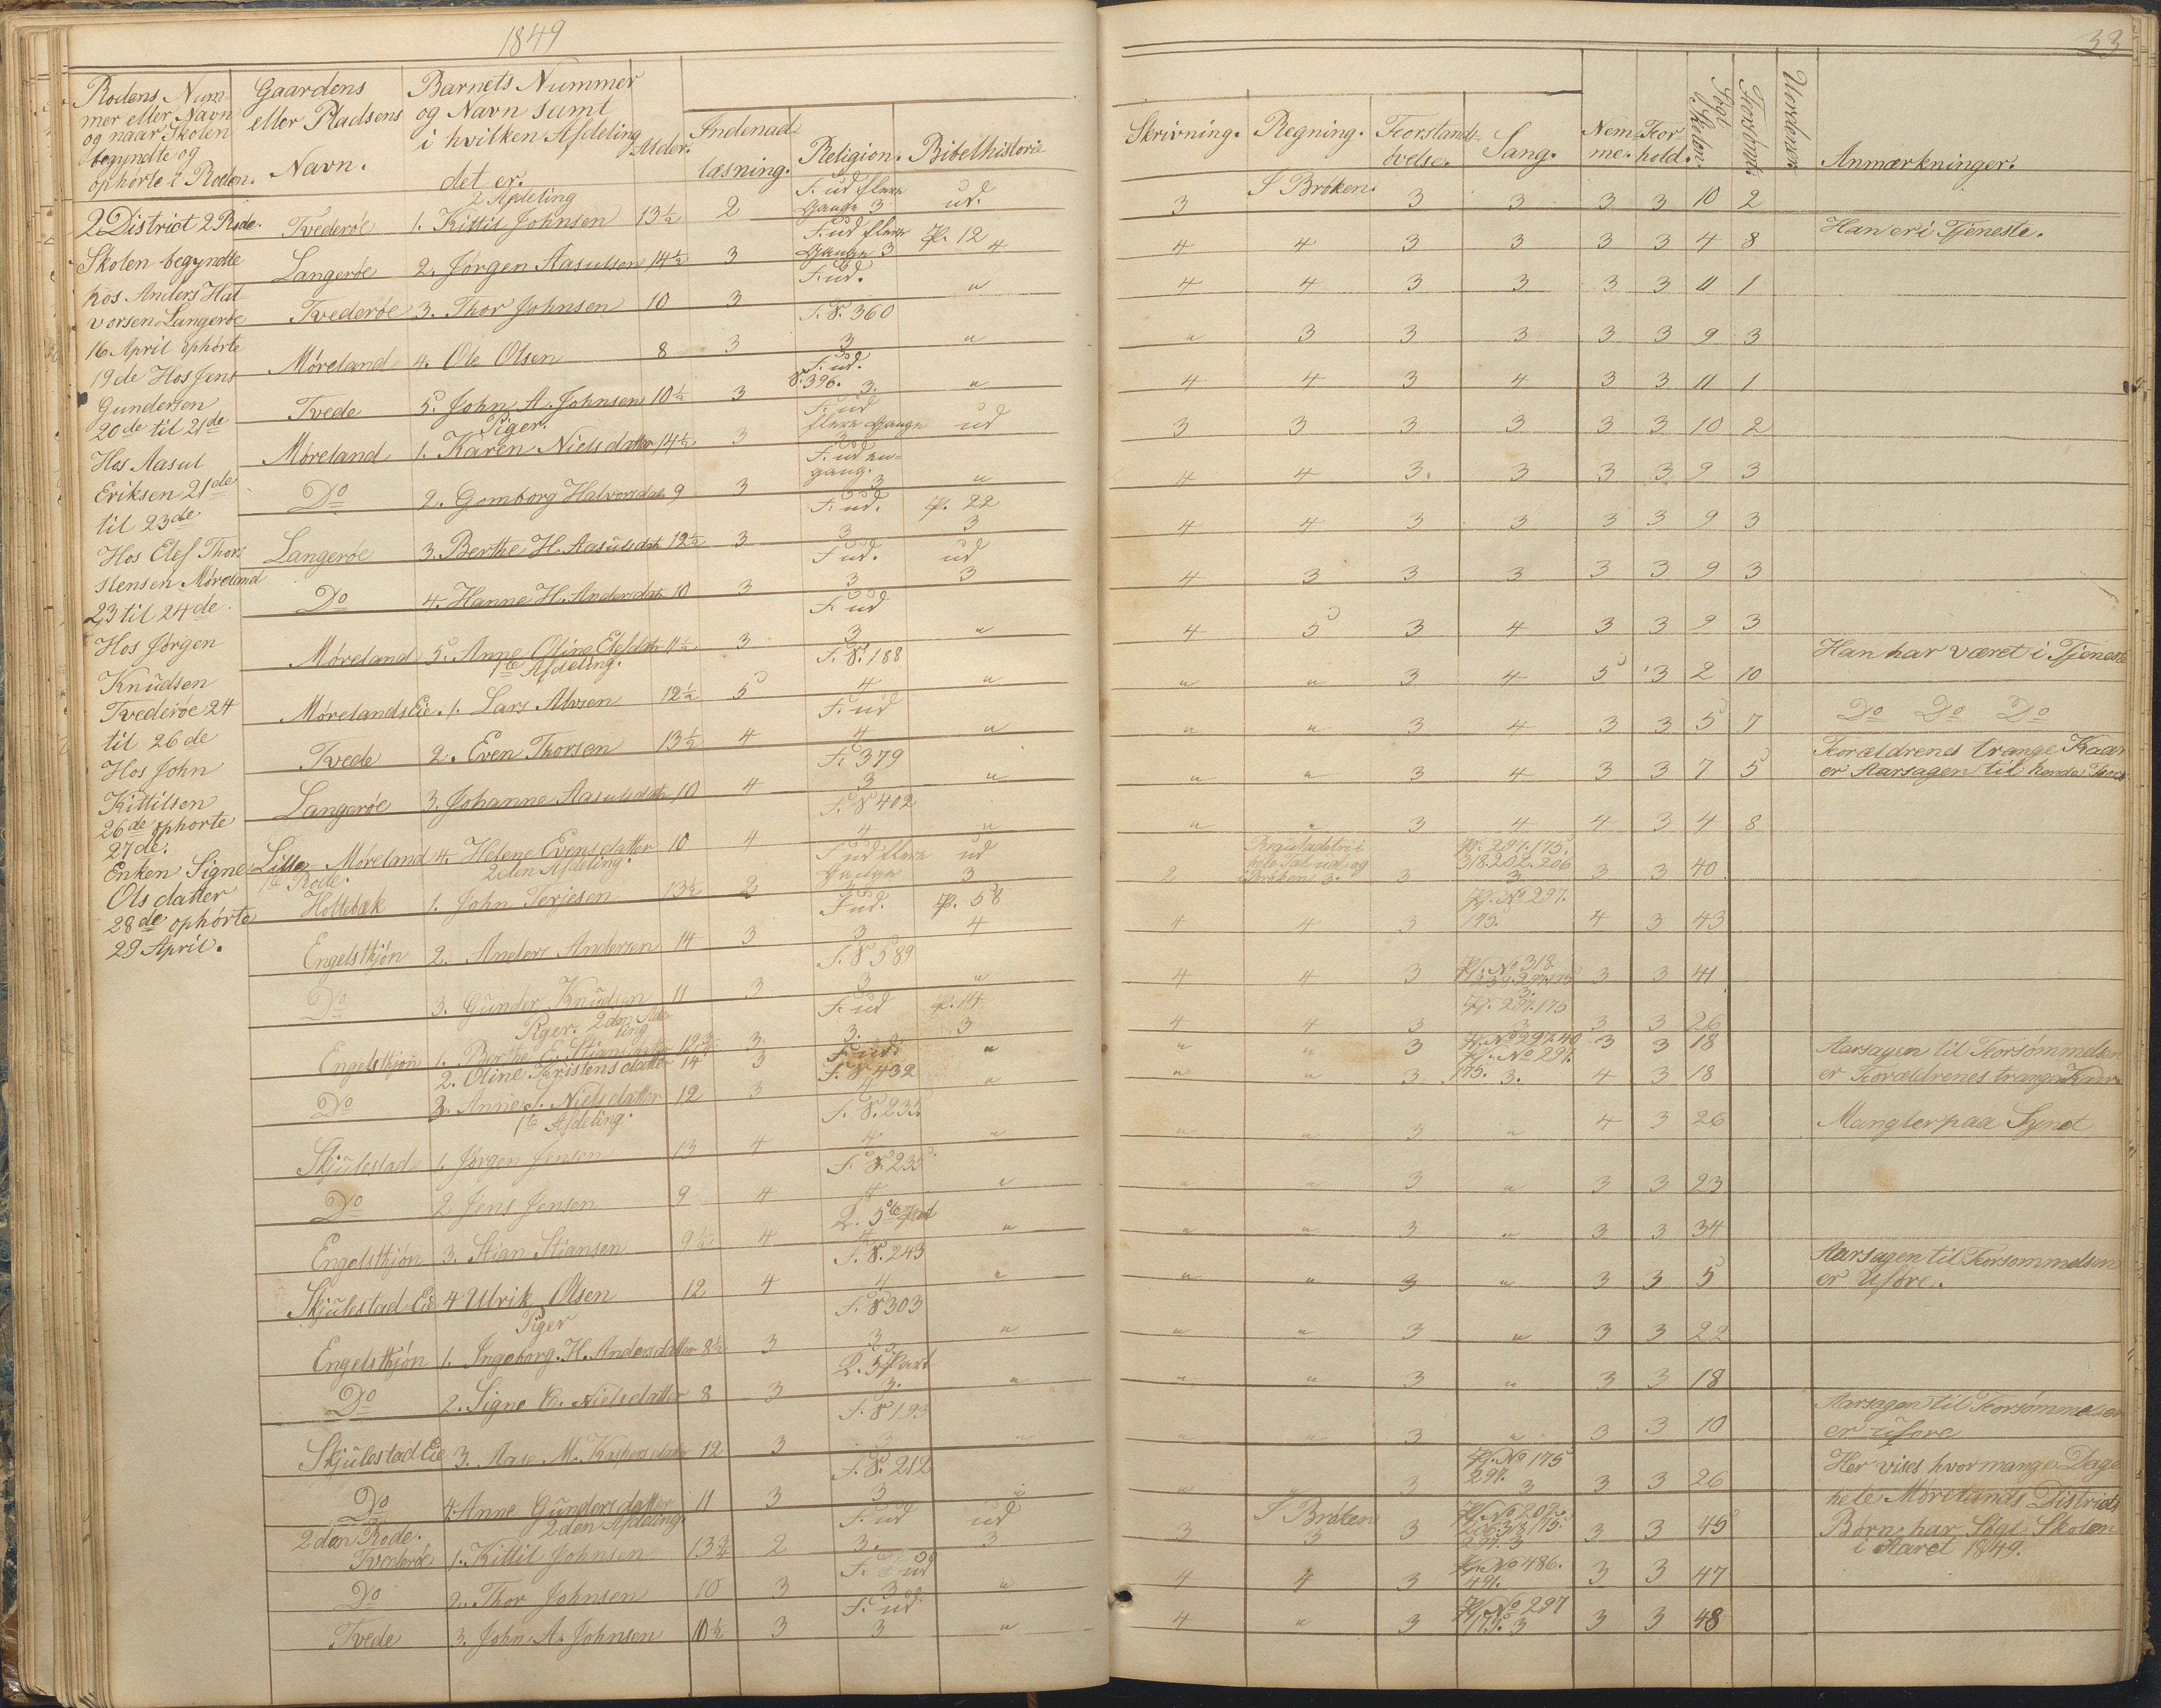 1849
Rodens Num-
mer eller Navn
og naar Skolen
begyndte og
ophørte i Roden.
Gaardens
eller Pladsens
Navn.
Barnets Nummer
og Navn samt
i hvilken Afdeling
det er.
Alder.
Indenad-
læsning.
Religion.
Bibelhistorie
2 District 2 Rode.
Skolen begyndte
hos Anders Hal
vorsen Langerøe
16 April ophørte
19de Hos Jens
Gundersen
20de til 21de
Hos Aasul
Eriksen 21de
til 23de.
Hos Elef Thor
stensen Møreland
23 til 24de.
Hos Jørgen
Knudsen
Tvederøe 24
til 26de
Hos John
Kittilsen
26de ophørte
27de.
Enken Signe
Olsdatter
28de ophørte
29 April.
2 Afdeling
F. ud flere
Tvederøe 1. Kittil Johnsen 13½ 2 Gange 3 ud.
F. ud flere p. 12
Langerøe 2. Jørgen Aasulson 14½ 3 Gange 3 4
F. ud.
Tvederøe 3. Thor Johnsen 10 3 "
F. V. 360
Møreland 4. Ole Olsen 8 3 3 "
F. ud.
Tvede 5. John A. Johnsen 10½ 3 V. 396. 3. "
Piger. F. ud
Møreland 1. Karen Nielsdatter 14½ 3 flere Gange ud
3
F. ud en-
gang.
Do 2. Gomborg Halvorsdatr 9 3 3 "
F. ud. p. 22
Langerøe 3. Berthe H. Aasulsdatr 12½ 3 3 3
F ud. ud
Do 4. Hanne H. Andersdatr 10 3 3 3
F. ud
Møreland 5. Anne Oline Elefsdatr 11½ 3 3 "
1te Afdeling. F. V. 188
Mørelands Eie. 1. Lars Alvsen 12½ 5 4 "
F. ud
Tvede 2. Even Thorsen 13½ 4 4 "
F. 379
Langerøe 3. Johanne Aasulsdatr 10 4 3 "
F. V 402
Lille-Møreland 4. Helene Evensdatter 10 4 4 "
1te Rode. 2den Afdeling. F ud flere ud
Holtebæk 1. John Terjesen 13½ 2 Gange 3
F ud. p. 58
Engelsthjøn 2. Anders Andersen 14 3 3 4
F. V 589
Do 3. Gunder Knudsen 11 3 3 "
Piger. 2den Afde-
ling
F. ud p. 14
Engelsthjøn 1. Berthe E. Stiansdatter 12¾ 3. 3. 3
2. Oline Kristensdatter 14 3 F ud. "
F. V 432
Do 3. Anne S. Nielsdatter 12 3 4 "
1te Afdeling. F. V. 235
Skjulestad 1. Jørgen Jensen 13 4 4 "
F. V. 235
Do 2 Jens Jensen 9 4 4 "
L. 5te Part
Engelsthjøn 3. Stian Stiansen 9½ 4 4 "
F. V. 243
Skjulestad Eie 4 Ulrik Olsen 12 4 4 "
Piger F. V 303
Engelsthjøn 1. Ingeborg H. Andersdatter 8½ 3 3 "
L. 5 Part
Do 2. Signe E. Nielsdatter 8 3 3. "
F. V 193
Skjulestad Eie 3. Aase M. Kaspersdatter 12 3 3 "
F. V. 212
Do 4 Anne Gundersdatter 11 3 3 "
2den Rode. 2den Afdeling. F. ud ud
Tvederøe 1. Kittil Johnsen 13¾ 2 3. 3
F. ud
Do 2. Thor Johnsen 10 3 3 "
F. ud
Tvede 3. John A. Johnsen 10½ 3 3 "
33
Skrivning. Regning. Forstands-
øvelse. Sang. Nem-
me. For-
hold. Søgt
Skolen. Forsømt. Uordener. Anmærkninger.
3 I Brøken. 3 3 3 3 10 2
4 4 3 3 3 3 4 8 Han er i Tjeneste.
4 4 3 3 3 3 11 1
" 3 3 3 3 3 9 3
4 4 3 4 3 3 11 1
3 3 3 3 3 3 10 2
4 4 3. 3 3 3 9 3
4 4 3 3 3 3 9 3
4 3 3 3 3 3 9 3
4 5 3 4 3 3 9 3
" " 3 4 5 3 2 10 Han har været i Tjeneste
" " 3 4 3 3 5 7 Do Do Do
" " 3 4 3 3 7 5 Forældrenes trange Kaar
er Aarsagen til hendes
" " 3 4 4 3 4 8
Regula detri i
hele Tal ud, og
2 i Brøken 3. 3 Ps. 297. 175.
318. 202. 206
3 3 3 40
4 4 3 Ps. No 297.
175. 4 3 43
4 4 3 Ps. No 318.
239. 297. 175
3. 3 3 41
Ps. 297. 175
4 4 3 3 3 3 26
" " 3 Ps. No 297. 40 3 3 18 Aarsagen til Forsømmelsen
" " 3 Ps. No 297.
175. 3. 4 3 18 er Forældrenes trange Kaar
" " 3 " 4 3 26 Mangler paa Synet
" " 3 " 3 3 23
" " 3 " 3 3 34
" " 3 " 3 3 5 Aarsagen til Forsømmelsen
er Uføre.
" " 3 " 3 3 22
" " 3 " 3 3 18
" " 3 " 3 3 10 Aarsagen til Forsømmelsen
er uføre
" " 3 Ps. No 175
297. 3 3 3 26 Her vises hvor mange Dage
hele Mørelands Districts
3 I Brøken
3 3 Ps. No 202.
206. 318. 175.
297. 3 3 3 45 Børn har Søgt Skolen
i Aaret 1849.
4 4 3 Ps. No 486.
491. 3 3 47
4 " 3 Ps. No 297
175. 3 3 3 48